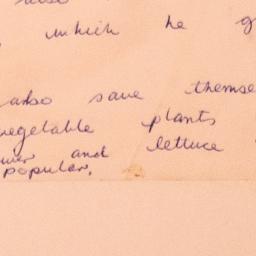 which he g
also save themse
vegetable plants
and lettuce
popular.